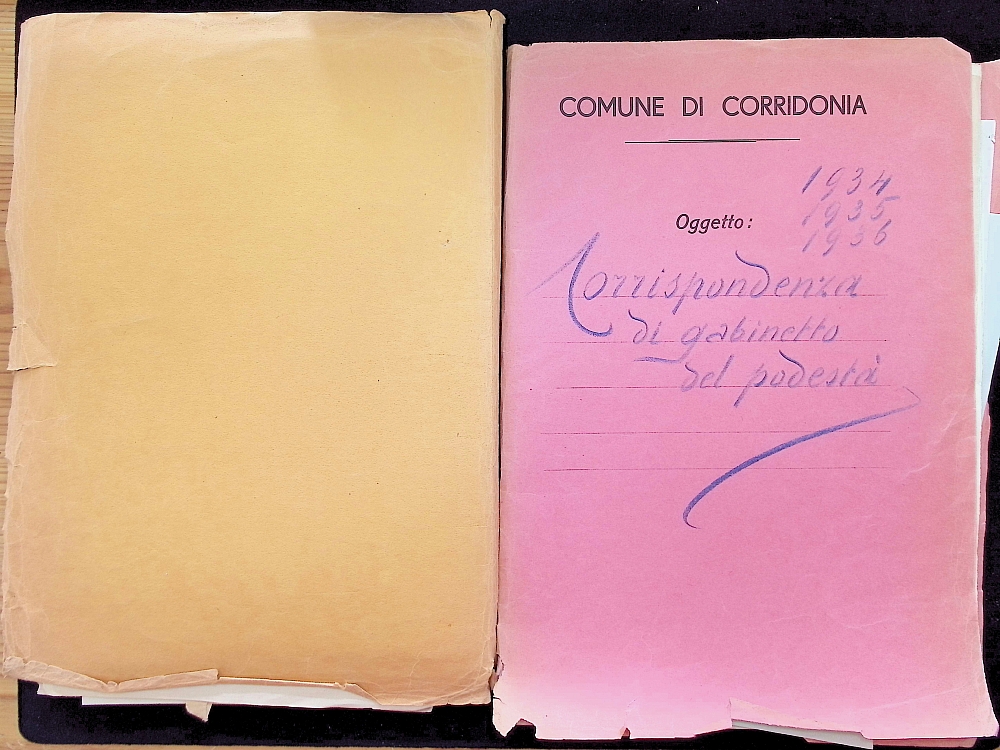 COMUNE DI CORRIDONIA
1934
1935
1936
Oggetto:
Corrispondenza
di gabinetto
del podestà